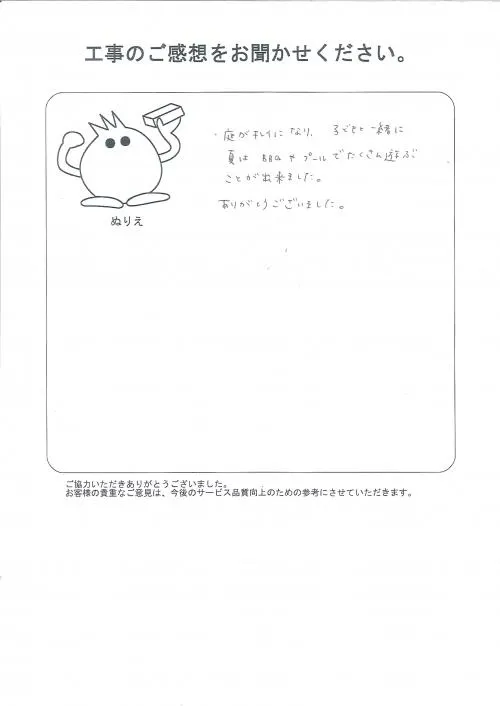 工事のご感想をお聞かせください。
・庭がキレイになり、子どもと一緒に
夏はBBQやプールでたくさん遊ぶ
ことが出来ました。
ありがとうございました。
ぬりえ
ご協力いただきありがとうございました。
お客様の貴重なご意見は、今後のサービス品質向上のための参考にさせていただきます。